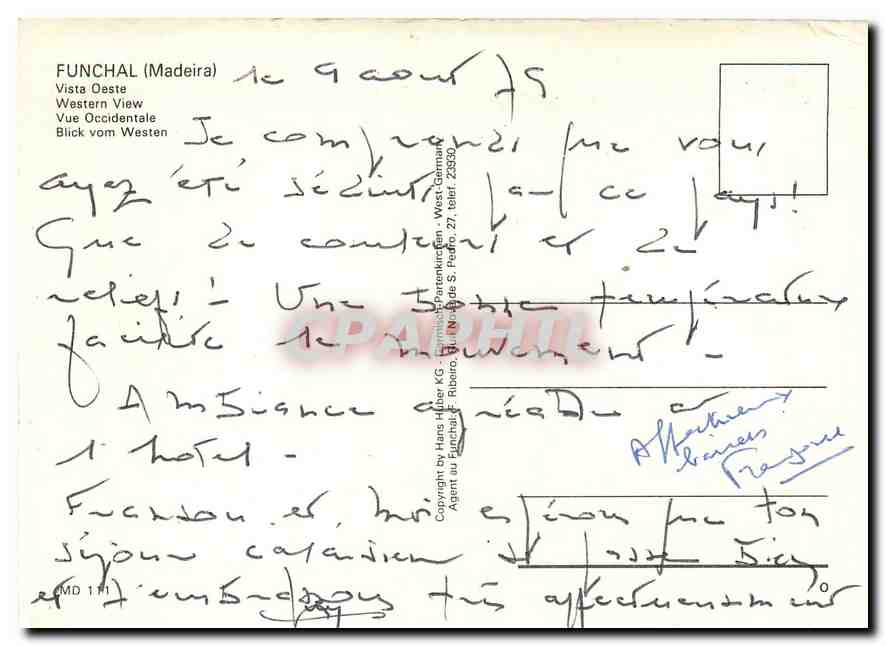 FUNCHAL (Madeira)
Vista Oeste
Western View
Vue Occidentale
Blick vom Westen
le 9 aout 79
Je comprends que vous
ayez été séduits par ce pays!
Que de couleurs et de
reliefs! Une bonne température
facilite le mouvement -
Ambiance agréable à
l'hotel -
et moi espérons que ton
séjour canadien se passe bien
et t'embrassons très affectueusement
Affectueux
baisers
Copyright by Hans Huber KG - Garmisch-Partenkirchen - West-Germany
Agent au Funchal: F. Ribeiro, Rua Nova de S. Pedro, 27, telef. 23930
MD 111
O
CPAPHIL